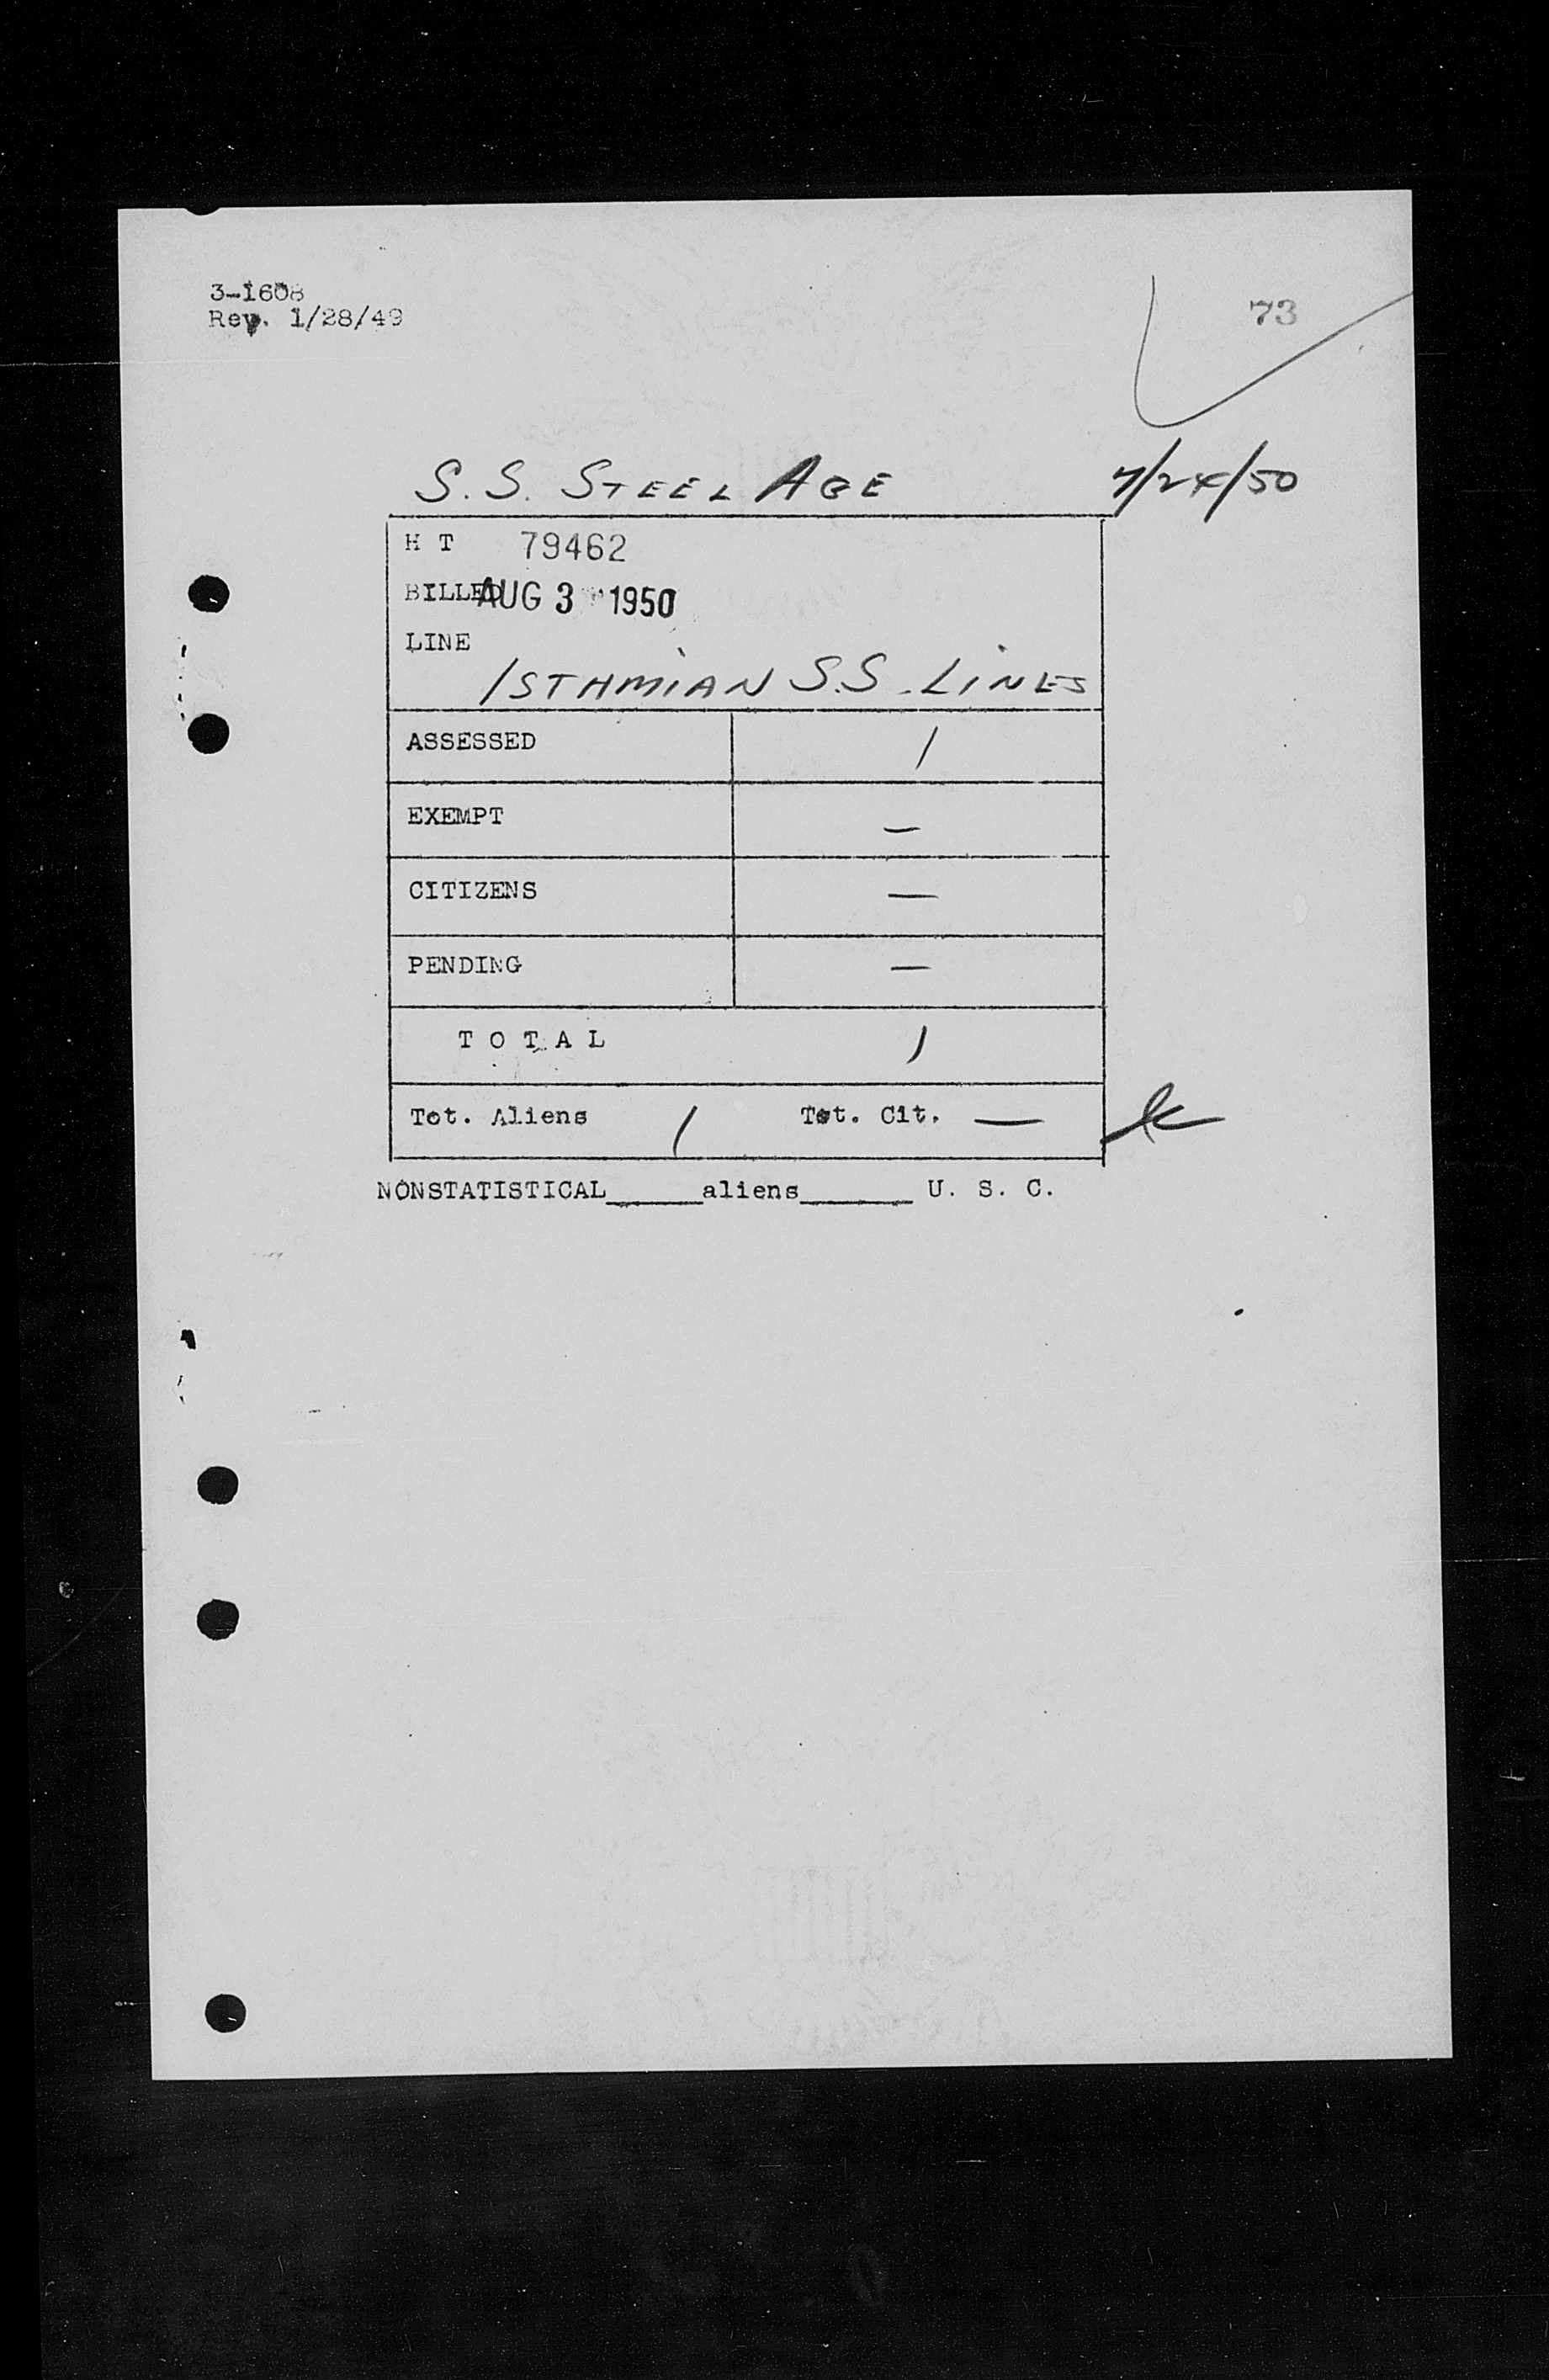 3-1608
Rev. 1/28/49
73
S.S. STEEL AGE 7/24/50
H T 79462
BILLED AUG 3 1950
LINE
ISTHMIAN S.S. LINES
ASSESSED 1
EXEMPT —
CITIZENS —
PENDING —
T O T A L 1
Tot. Aliens 1 Tot. Cit. —
NONSTATISTICAL______aliens_______ U. S. C.